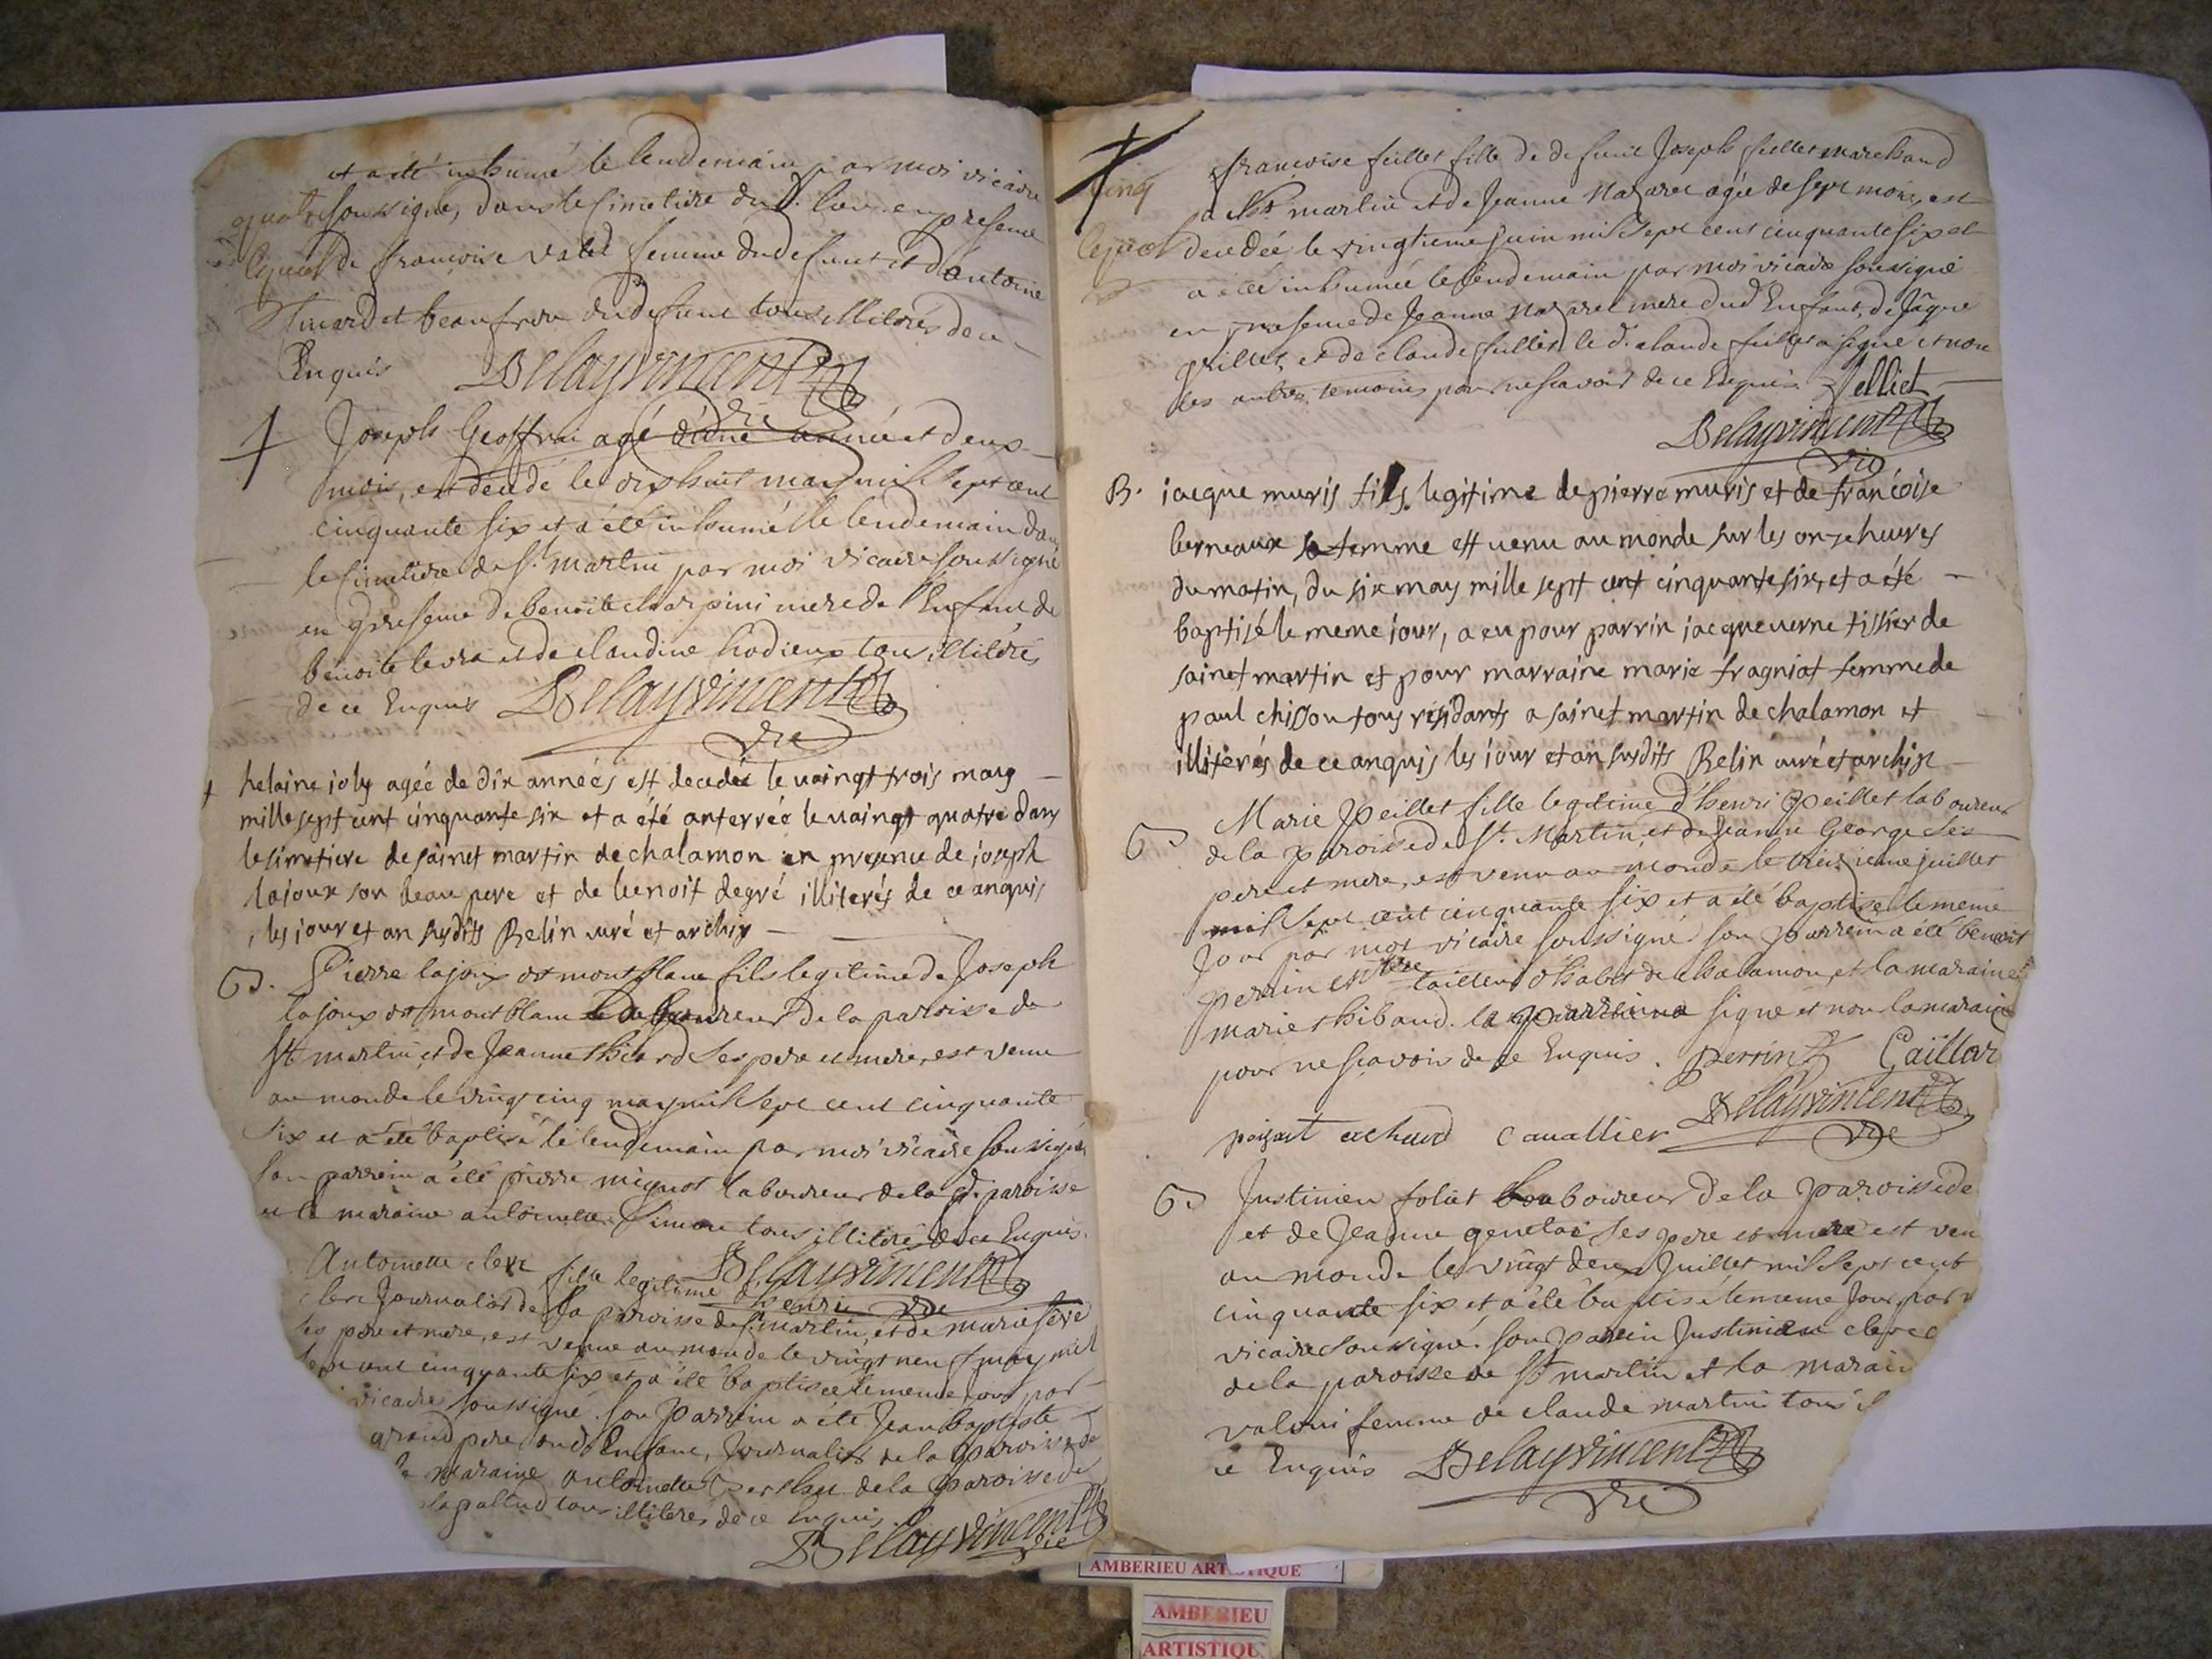 et a été inhumé le lendemain par moi vicaire
quatr soussigné, dans le cimetiere dud. lieu en presence
lequel de francoise femme du defunt et d'antoine
et beau frere du defunt tous illiterés de ce
Enquis Delayvincent
vre
+ Joseph Geoffrai agé d'une année et deux
mois, est decedé le dix huit may mil sept cent
cinquante six et a été inhumé le lendemain dans
le cimetiere de St. martin par moi vicaire soussigné
en presence de benoite charpini mere de l'Enfant de
benoite levra et de claudine hodieux tous illiterés
de ce Enquis Delayvincent
vre
+ helaine joly agée de dix années est decedée le vaingt trois may
mille sept cent cinquante six et a été anterrée le vaingt quatre dans
le simetiere de sainct martin de chalamon en presence de joseph
lajoux son beau pere et de benoit degré illiterés de ce anquis
les jour et an susdits Belin curé et archip
B. Pierre lajoux dt montblanc fils legitime de Joseph
lajoux dt montblanc laboureur de la paroisse de
St martin, et de Jeanne thicard ses pere et mere, est venu
au monde le vingt cinq may mil sept cent cinquante
six et a été baptisé le lendemain par moi vicaire soussigné
son parrein a été pierre mignot laboureur de la de. paroisse
et la maraine antoinette Simon tous illiterés de ce Enquis.
Delayvincent
vre
Antoinette clerc fille legitime d'henri
clerc Journalier de la paroisse de St. martin, et de marie
ses pere et mere, est venue au monde le vingt neuf may mil
sept cent cinquante six et a été baptisée le meme jour par
vicaire soussigné. son Parrein a été Jean baptiste
grand pere dud. Enfant, Journalier de la paroisse de
la maraine antoinette de la paroisse de
la palud tous illiterés de ce Enquis.
Delayvincent
vre
cinq francoise feillet fille de defunt Joseph feillet marchand
a St martin et de Jeanne Nazaret agée de sept mois, est
lequel decedée le vingtieme juin mil sept cent cinquante six et
a été inhumée le lendemain par moi vicaire soussigné
en presence de Jeanne Nazaret mere dud. Enfant, de Jâque
feillet, et de claude feillet. le d. claude feillet a signé et non
les autres temoins pour ne scavoir de ce Enquis
Delayvincent
vre
B. jacque muris fils legitime de pierre muris et de francoise
berneaux sa femme est venu au monde sur les onze heures
du matin, du six may mille sept cent cinquante six, et a été
baptisé le meme jour, a eu pour parrin jacque verne tissier de
sainct martin et pour marraine marie fragniat femme de
paul chisson tous residants a sainct martin de chalamon et
illiterés de ce anquis les jour et an susdits Belin curé et archip
B Marie Peillet fille legitime d'henri Peillet laboureur
de la paroisse de St. Martin, et de jeanne George ses
pere et mere, est venu au monde le juillet
mil sept cent cinquante six et a été baptisé le meme
Jour par moi vicaire soussigné son parrein a été benoit
perrin tailleur d'habit de chalamon, et la maraine
marie thibaud. le parrein a signé et non la maraine
pour ne scavoir de ce Enquis. Perrin Caillat
Delayvincent
achard Cavallier vre
B Justinien foliet laboureur de la paroisse de
et de Jeanne genelas ses pere et mere est ven
au monde le vingt deux Juillet mil sept cent
cinquante six et a été baptisé le meme Jour par
vicaire soussigné. son parrein Justinien clerc
de la paroisse de St martin et la marai
valoui femme de claude martin tous il
ce Enquis Delayvincent
vre
AMBERIEU ARTISTIQUE
AMBERIEU
ARTISTIQU